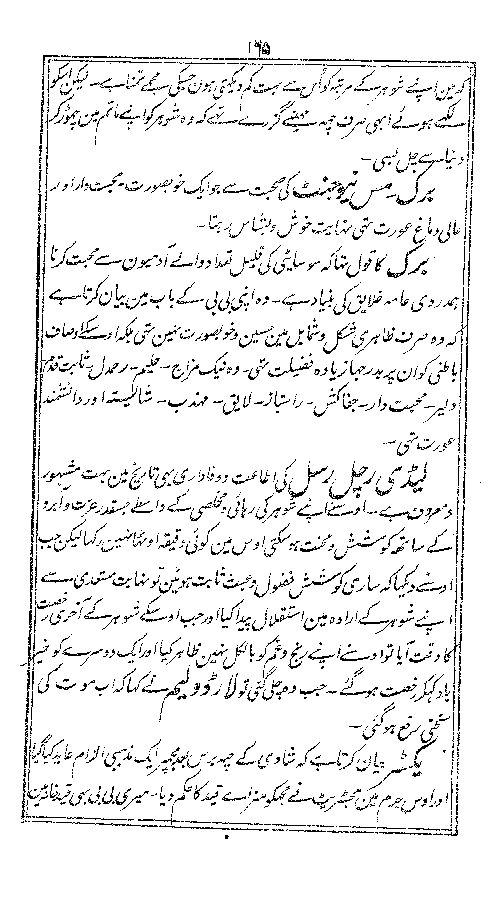 ۱۶۵
کہ مین اپنے شوہر کے مرتبہ کو اُس سے بہت کم دیکھتی ہون جسکی مجھے تمنا ہے۔ لیکن اسکو
لکھے ہوئے ابھی صرف چھہ مہینے گزرے تھے کہ وہ شوہر کو اپنے ماتم مین چھوڑ کر
دنیا سے چل بسی۔
برک۔ مس نیوجنٹ کی صحبت سے جو ایک خوبصورت۔ محبت دار اور
عالی دماغ عورت تھی نہایت خوش و بشاش رہتا۔
برک کا قول تھا کہ سوسایٹی کی قلیل تعداد والے آدمیون سے محبت کرنا
ہمدردی عامہ خلایق کی بنیاد ہے۔ وہ اپنی بی بی کے باب مین بیان کرتا ہے
کہ وہ صرف ظاہری شکل و شمایل مین حسین و خوبصورت نہین تھی بلکہ اوسکے اوصاف
باطنی کو ان پر بدرجہا زیادہ فضیلت تھی۔ وہ نیک مزاج۔ حلیم۔ رحمدل۔ ثابت قدم
دلیر۔ محبت دار۔ جفاکش۔ راستباز۔ لایق۔ مہذب۔ شایستہ اور دانشمند
عورت تھی۔
لیڈی رچل رسل کی اطاعت و وفاداری بھی تاریخ مین بہت مشہور
و معروف ہے۔ اوسنے اپنے شوہر کی رہائی و مخلصی کے واسطے جسقدر عزت و آبرو
کے ساتھ کوشش و محنت ہو سکتی اوس مین کوئی دقیقہ اوٹھا نہین رکھا لیکن جب
اوسنے دیکھا کہ ساری کوشش فضول و عبث ثابت ہوئین تو نہایت مستعدی سے
اپنے شوہر کے ارادہ مین استقلال پیدا کیا اور جب اوسکے شوہر کے آخری رخصت
کا وقت آیا تو اوسنے اپنے رنج و غم کو بالکل نہین ظاہر کیا اور ایک دوسرے کو خیر
باد کہکر رخصت ہو گئے۔ جب وہ چلی گئی تو لارڈ ولیم نے کہا کہ اب موت کی
سختی رفع ہو گئی۔
بیان کرتا ہے کہ شادی کے چھہ برس بعد مجھپر ایک مذہبی الزام عاید کیا گیا
اور اوس جرم مین مجسٹریٹ نے مجھکو سزاے قید کا حکم دیا۔ میری بی بی بھی قیدخانہ مین